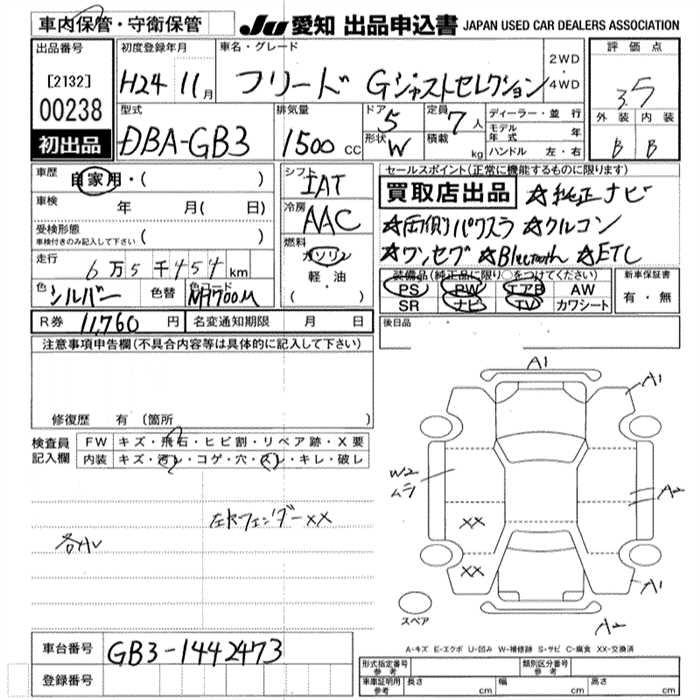 車内保管・守衛保管
JU 愛知 出品申込書 JAPAN USED CAR DEALERS ASSOCIATION
出品番号
[2132]
00238
初出品
初度登録年月
H24 11月
車名・グレード
フリード Gジャストセレクション
2WD
・
4WD
評価点
3.5
外装 内装
B B
型式
DBA-GB3
排気量
1500 cc
ドア
5
形状
W
定員
7人
積載
kg
ディーラー・並行
モデル年式 年
ハンドル 左・右
車歴
自家用・( )
車検
年 月( 日)
受検形態
車検付きのみ記入して下さい ( )
走行
6万5千454km
色 シルバー 色替 色コード NH700M
シフト
IAT
冷房
AAC
燃料
ガソリン
軽・油
( )
セールスポイント(正常に機能するものに限ります)
買取店出品 ☆純正ナビ
☆両側パワスラ ☆クルコン
☆ワンセグ ☆Bluetooth ☆ETC
装備品(純正品に限り○をつけてください)
PS PW エアB AW
SR ナビ TV カワシート
新車保証書
有・無
R券 11,760円 名変通知期限 月 日
後日品
注意事項申告欄(不具合内容等は具体的に記入して下さい)
修復歴 有 〔箇所 〕
検査員
記入欄
FW キズ・飛石・ヒビ割・リペア跡・X要
内装 キズ・汚レ・コゲ・穴・スレ・キレ・破レ
左Fフェンダー XX
各小
A1
A1
W2
ムラ
A2
XX
XX
A1
A2
スペア
A-キズ E-エクボ U-凹み W-補修跡 S-サビ C-腐食 XX-交換済
車台番号 GB3-1442473
登録番号
形式指定番号
参考
類別区分番号
参考
車庫証明用
参考
長さ cm 幅 cm 高さ cm